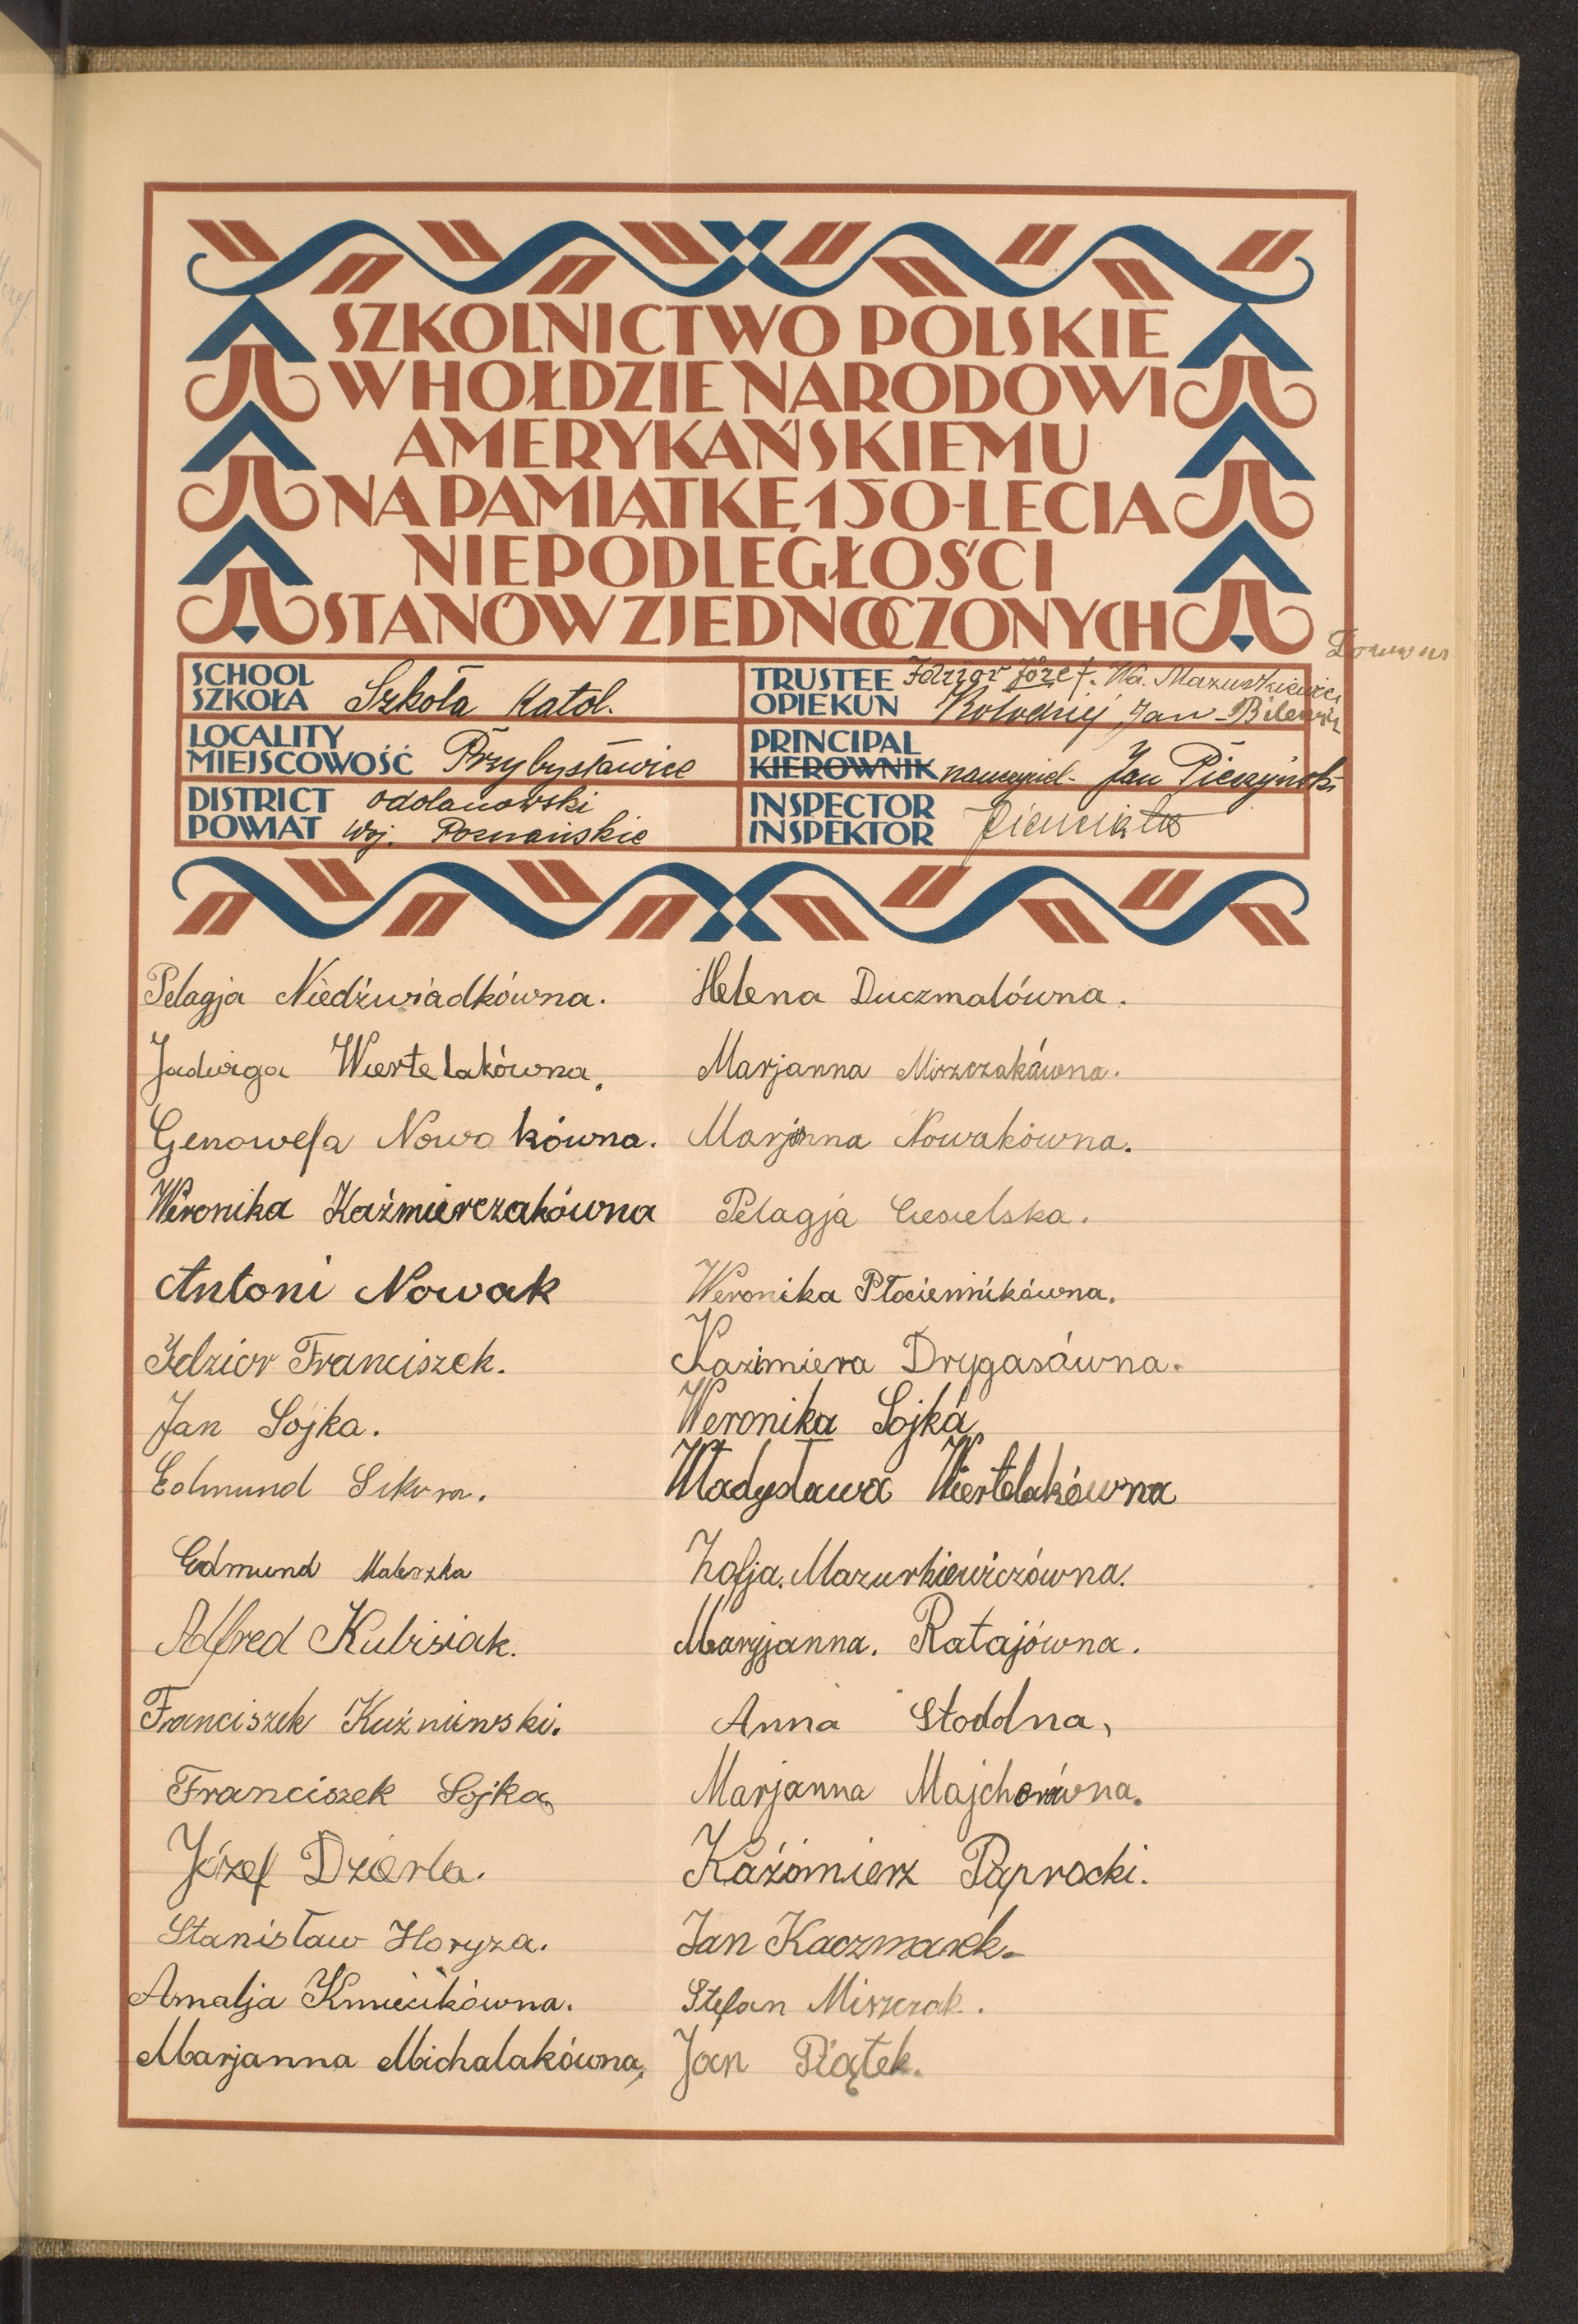 SZKOLNICTWO POLSKIE
W HOŁDZIE NARODOWI
AMERYKAŃSKIEMU
NA PAMIĄTKĘ 150-LECIA
NIEPODLEGŁOŚCI
STANÓW ZJEDNOCZONYCH
SCHOOL
SZKOŁA Szkoła Katol.
TRUSTEE Idzior Józef. Wa. Mazurkiewicz
OPIEKUN Kołodziej Jan
LOCALITY
MIEJSCOWOŚĆ Przybysławice
PRINCIPAL
KIEROWNIK nauczyciel - Jan Pieczyński
DISTRICT odolanowski
POWIAT Woj. Poznańskie
INSPECTOR
INSPEKTOR
Pelagja Niedźwiadkówna.
Jadwiga Wiertelakówna.
Genowefa Nowakówna.
Weronika Kaźmierczakówna
Antoni Nowak
Idzior Franciszek.
Jan Sójka.
Edmund Sikora.
Edmund Maleszka
Alfred Kubisiak.
Franciszek Kuźniewski.
Franciszek Sójka.
Józef Dzierla.
Stanisław Horyza.
Amalja Kmiecikówna.
Marjanna Michalakówna,
Helena Duczmalówna.
Marjanna Miszczakówna.
Marjanna Nowakówna.
Pelagja Ciesielska.
Weronika Płóciennikówna.
Kazimiera Drygasówna.
Weronika Sójka
Władysława Wiertelakówna
Zofja. Mazurkiewiczówna.
Maryjanna. Ratajówna.
Anna Stoddna,
Marjanna Majchorówna.
Kaźimierz Paprocki.
Jan Kaczmarek.
Stefan Miszczak.
Jan Piątek.